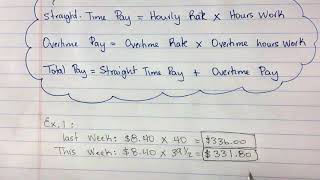 Straight-Time Pay = Hourly Rate x Hours Work
Overtime Pay = Overtime Rate x Overtime hours Work
Total Pay = Straight Time Pay + Overtime Pay
Ex. 1:
last Week: $8.40 x 40 = $336.00
This Week: $8.40 x 39 1/2 = $331.80